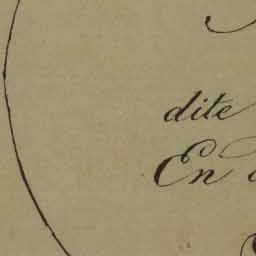 dite
En